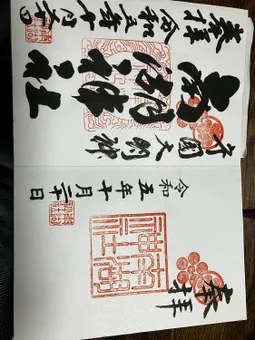 奉拝
守國大明神
南湖神社
令和五年十月二十日
奉拝
南湖神社
令和五年十月二十日